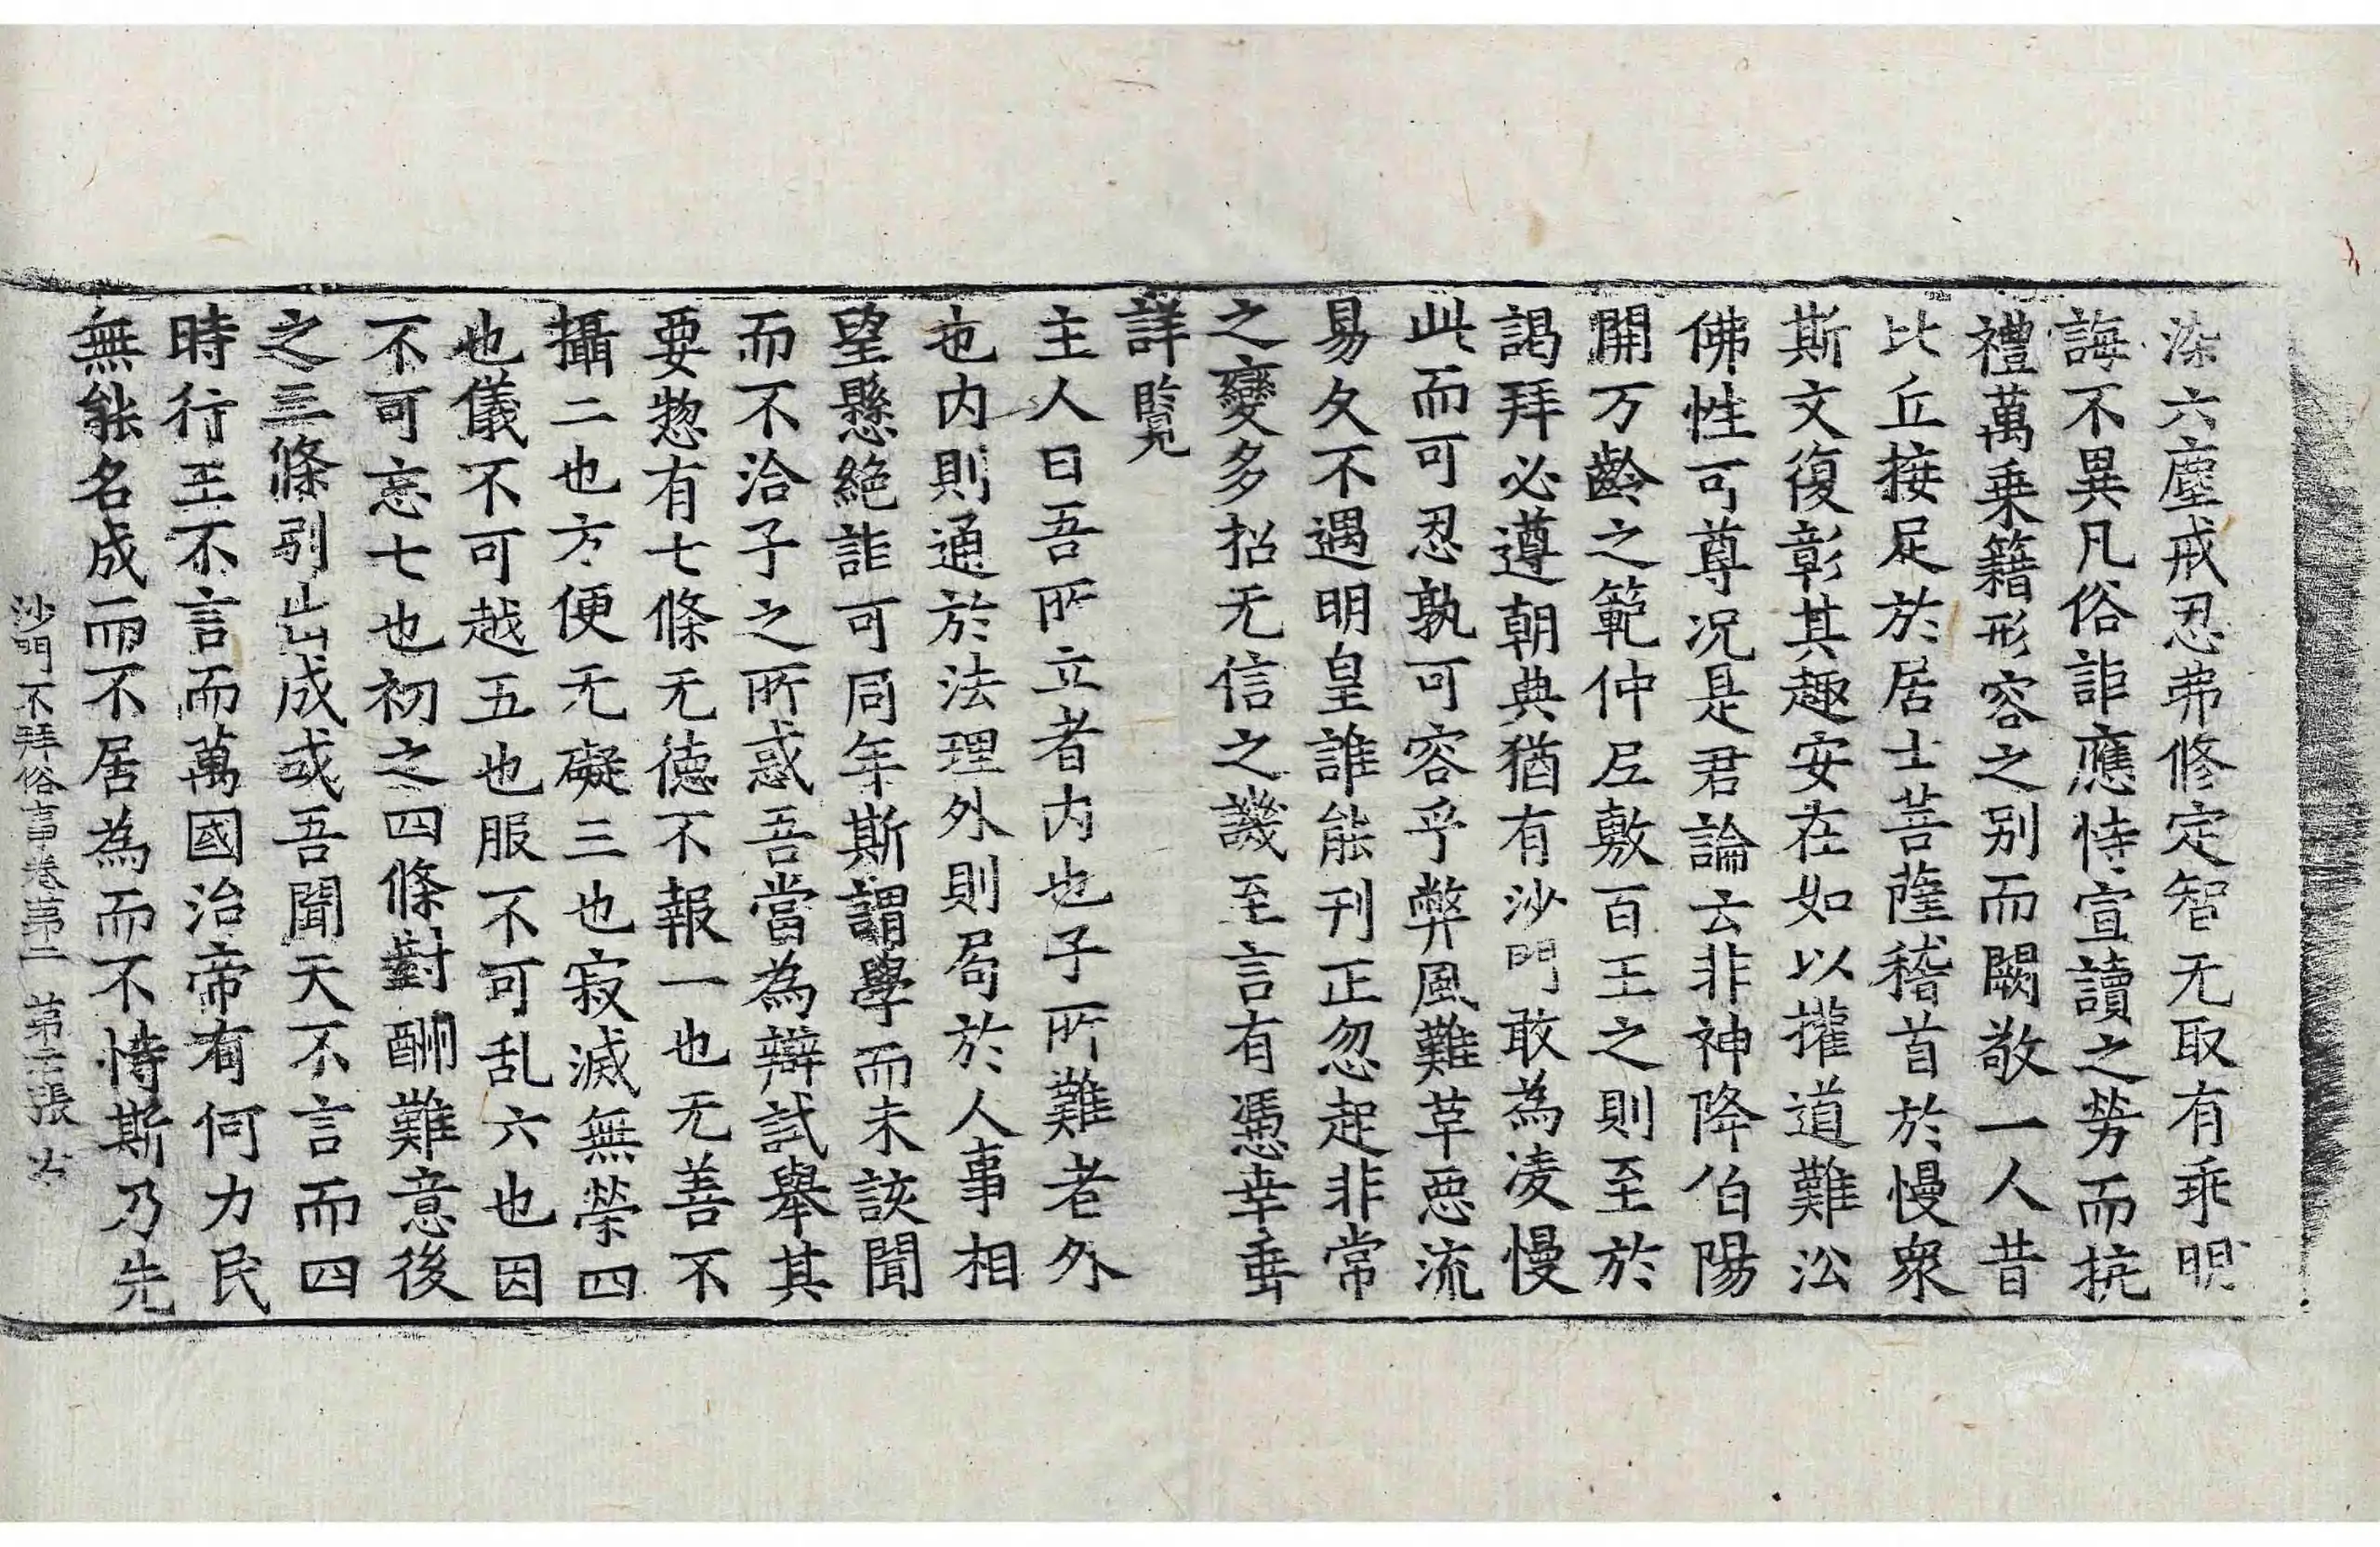 染六塵戒忍弗修定智无取有乖明
誨不異凡俗詎應恃宣讀之勞而抗
禮萬乗籍形容之别而闕敬一人昔
比丘接足於居士菩薩稽首於慢衆
斯文復彰其趣安在如以攉道難沿
佛性可尊况是君論云非神降伯陽
開万齡之範仲尼敷百王之則至於
謁拜必遵朝典猶有沙門敢為凌慢
此而可忍孰可容乎弊風難革惡流
易久不遇明皇誰能刊正忽起非常
之變多招无信之譏至言有憑幸垂
詳覧
主人曰吾所立者内也子所難者外
也内則通於法理外則局於人事相
望懸絶詎可同年斯謂學而未該聞
而不洽子之所惑吾當為辯試舉其
要惣有七條无徳不報一也无善不
攝二也方便无礙三也寂滅無榮四
也儀不可越五也服不可乱六也因
不可忘七也初之四條對酬難意後
之三條引出成或吾聞天不言而四
時行王不言而萬國治帝有何力民
無能名成而不居為而不恃斯乃先
沙門不拜俗事巻苐二　苐張